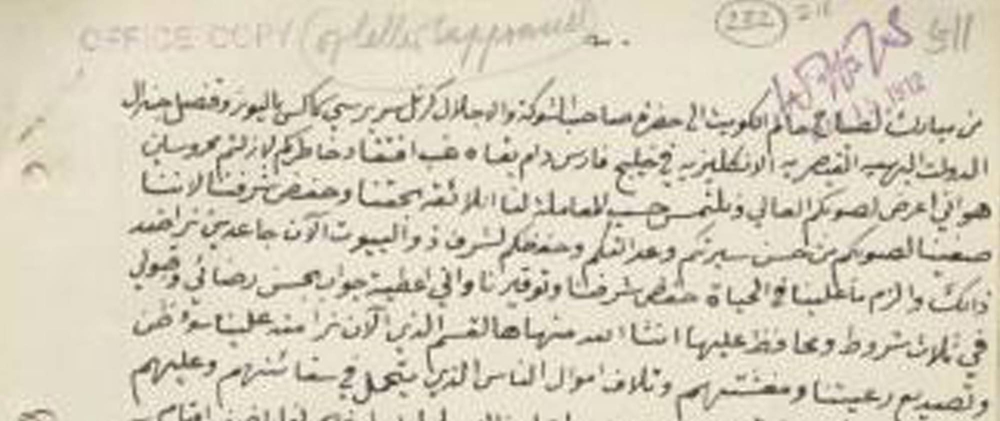 OFFICE COPY (of letter approved)
232
511
1912
من مبارك الصباح حاكم الكويت الى حضرة صاحب الشوكة والاجلال كرنل سر برسي كاكس باليوز وقنصل جنرال
الدولت البهيه القيصريه الانكليزيه في خليج فارس دام بقاه غب افتقاد خاطركم لازلتم محروسين
هو اني اعرض لصوبكم العالي ونلتمس حسب المعاملة لنا اللائقه بحقنا وحفض شرفنا لاننا
صغينا لصوبكم من حسن سيرتكم وعدالتكم وحفضكم لشرف ذو البيوت الآن جاعدين نراضد
ذالك والزم ما علينا في الحياة حفض شرفنا وتوقيرنا واني اعطية جواب بحسن رضائي وقبولي
في ثلاث شروط ومحافظ عليها اننا منها هالقسم الذي الآن نرا علينا
وتصديع رعيتنا ومفتشتهم وتلاف اموال الناس الذي يتحمل في سفائنهم وعليهم